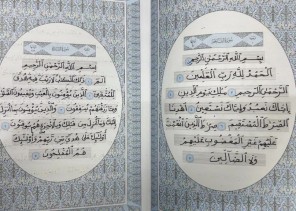 بِسْمِ اللَّهِ الرَّحْمَٰنِ الرَّحِيمِ
الْحَمْدُ لِلَّهِ رَبِّ الْعَٰلَمِينَ
الرَّحْمَٰنِ الرَّحِيمِ مَٰلِكِ يَوْمِ الدِّينِ
إِيَّاكَ نَعْبُدُ وَإِيَّاكَ نَسْتَعِينُ اهْدِنَا
الصِّرَٰطَ الْمُسْتَقِيمَ صِرَٰطَ الَّذِينَ أَنْعَمْتَ
عَلَيْهِمْ غَيْرِ الْمَغْضُوبِ عَلَيْهِمْ
وَلَا الضَّالِّينَ
بِسْمِ اللَّهِ الرَّحْمَٰنِ الرَّحِيمِ
الم ذَٰلِكَ الْكِتَٰبُ لَا رَيْبَ فِيهِ هُدًى
لِلْمُتَّقِينَ الَّذِينَ يُؤْمِنُونَ بِالْغَيْبِ وَيُقِيمُونَ الصَّلَوٰةَ
وَمِمَّا رَزَقْنَٰهُمْ يُنْفِقُونَ وَالَّذِينَ يُؤْمِنُونَ بِمَا أُنْزِلَ
إِلَيْكَ وَمَا أُنْزِلَ مِنْ قَبْلِكَ وَبِالْآخِرَةِ هُمْ يُوقِنُونَ
أُولَٰئِكَ عَلَىٰ هُدًى مِنْ رَبِّهِمْ وَأُولَٰئِكَ
هُمُ الْمُفْلِحُونَ